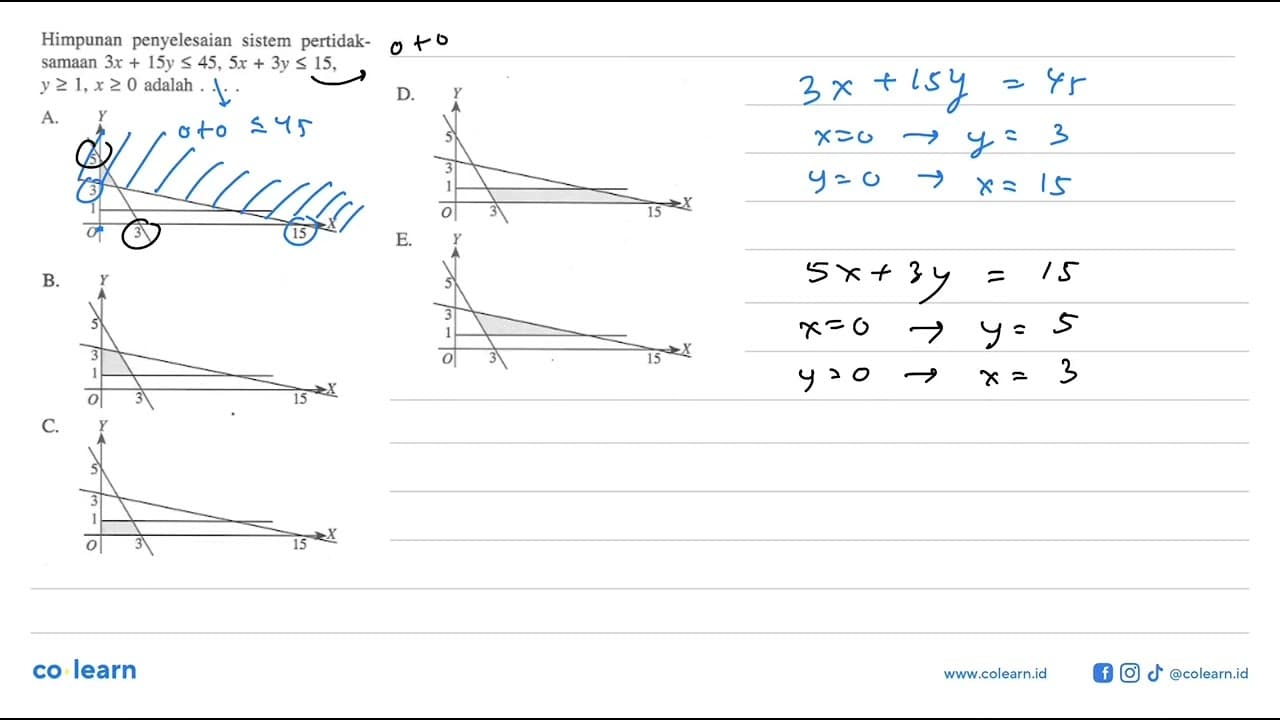 Himpunan penyelesaian sistem pertidak-
samaan 3x + 15y ≤ 45, 5x + 3y ≤ 15,
y ≥ 1, x ≥ 0 adalah . . . .
0+0
A.
Y
0+0 ≤ 45
5
3
1
O
3
15
X
B.
Y
5
3
1
O
3
15
X
C.
Y
5
3
1
O
3
15
X
D.
Y
5
3
1
O
3
15
X
E.
Y
5
3
1
O
3
15
X
3x + 15y = 45
x=0 → y = 3
y=0 → x = 15
5x + 3y = 15
x=0 → y = 5
y=0 → x = 3
co learn
www.colearn.id
@colearn.id